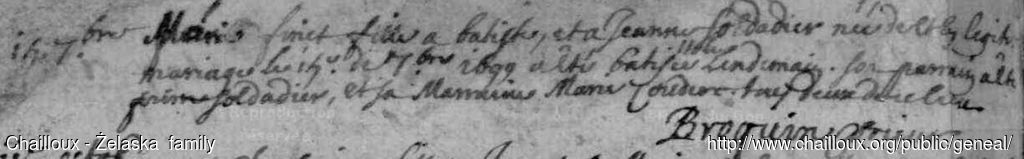 7.bre Marie finet fille a batiste, et a Jeanne soldadier née de leg legit.
mariage le de 7bre 1699 a été batisée lendemain. son parrain a été
soldadier, et sa Marraine Marie Couderc tous deux de ce lieu
Chailloux - Żelaska family
http://www.chailloux.org/public/geneal/